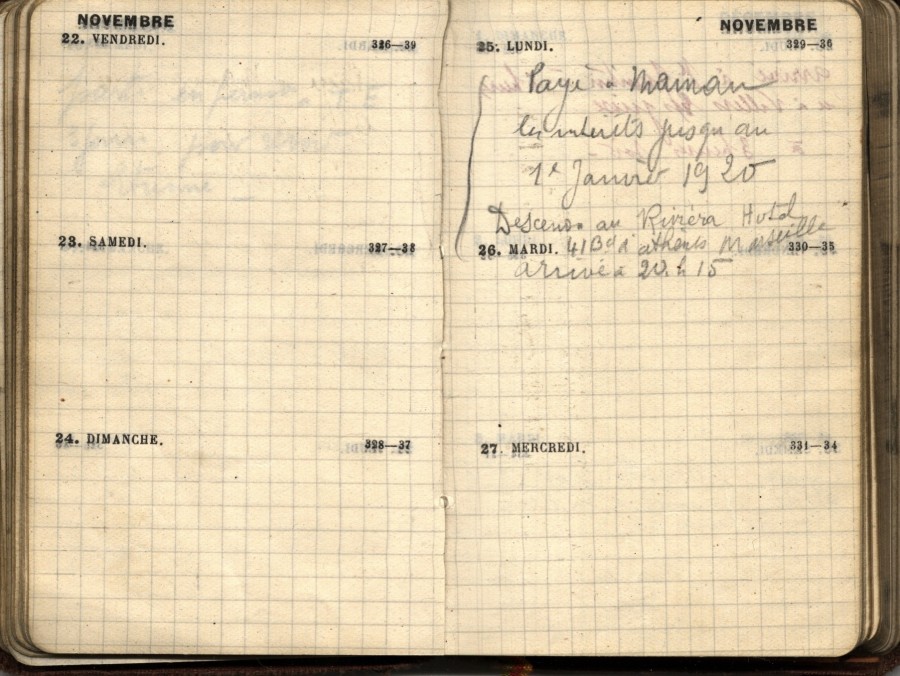 NOVEMBRE
22. VENDREDI. 326—39
en
pour
23. SAMEDI. 327—38
24. DIMANCHE. 328—37
NOVEMBRE
25. LUNDI. 329—36
Payé à Maman
les intérêts jusqu'au
1er Janvier 1920
Descends au Riviéra Hotel
26. MARDI. 330—35
41 Bd d'athènes Marseille
arrivé à 20 h 15
27. MERCREDI. 331—34